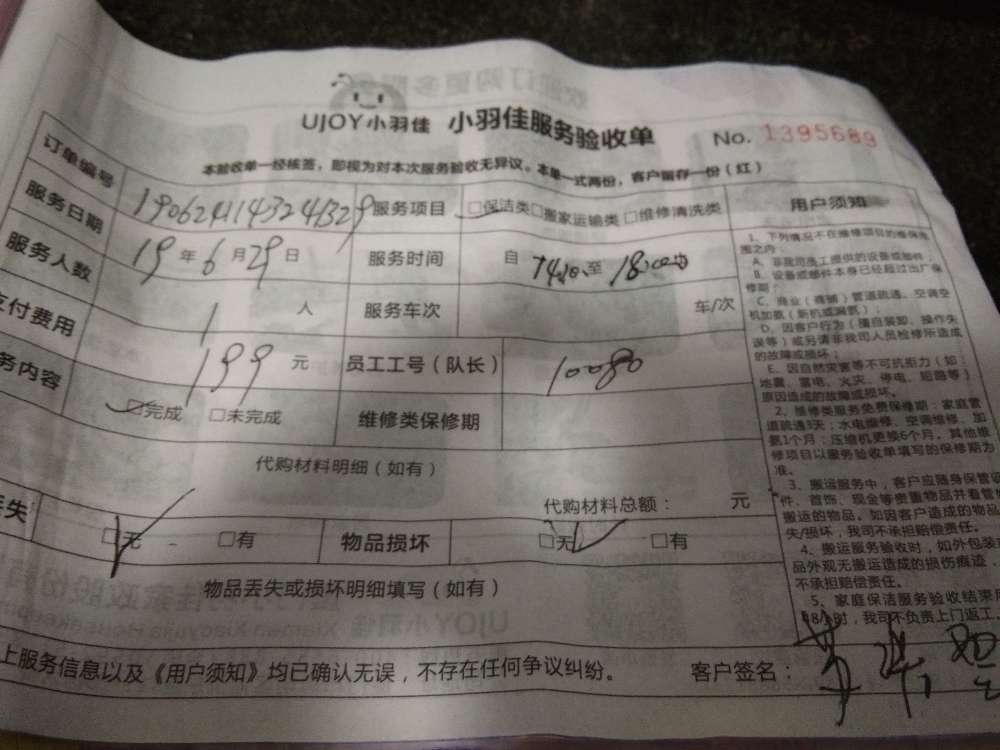 UJOY小羽佳 小羽佳服务验收单 No. 1395689
本验收单一经核签，即视为对本次服务验收无异议。本单一式两份，客户留存一份（红）
订单编号 190624143241329 服务项目 □保洁类□搬家运输类 □维修清洗类
服务日期 19 年 6 月 29 日 服务时间 自 至 18:00
服务人数 1 人 服务车次 车/次
支付费用 199 元 员工工号（队长） 10080
务内容 ☑完成 □未完成 维修类保修期
代购材料明细（如有）
代购材料总额： 元
丢失 ☑无 □有 物品损坏 ☑无 □有
物品丢失或损坏明细填写（如有）
上服务信息以及《用户须知》均已确认无误，不存在任何争议纠纷。 客户签名：
用户须知
1、下列情况不在维修项目的维保范
围之内：
A、非我司员工提供的设备或部件；
B、设备或部件本身已经超过出厂保
修期；
C、商业（商铺）管道疏通、空调空
机加氨（新机或漏氨）；
D、因客户行为（擅自装卸、操作失
误等）或另请非我司人员检修所造成
的故障或损坏；
E、因自然灾害等不可抗拒力（如：
地震、雷电、火灾、停电、短路等）
原因造成的故障或损坏。
2、维修类服务免费保修期：家庭管
道疏通3天；水电维修、空调维修、加
氨1个月；压缩机更换6个月。其他维
修项目以服务验收单填写的保修期为
准。
3、搬运服务中，客户应随身保管
件、首饰、现金等贵重物品并看管
搬运的物品。如因客户造成的物品
失/损坏，我司不承担赔偿责任。
4、搬运服务验收时，如外包装
品外观无搬运造成的损伤痕迹，
不承担赔偿责任。
5、家庭保洁服务验收结束
48小时，我司不负责上门返工